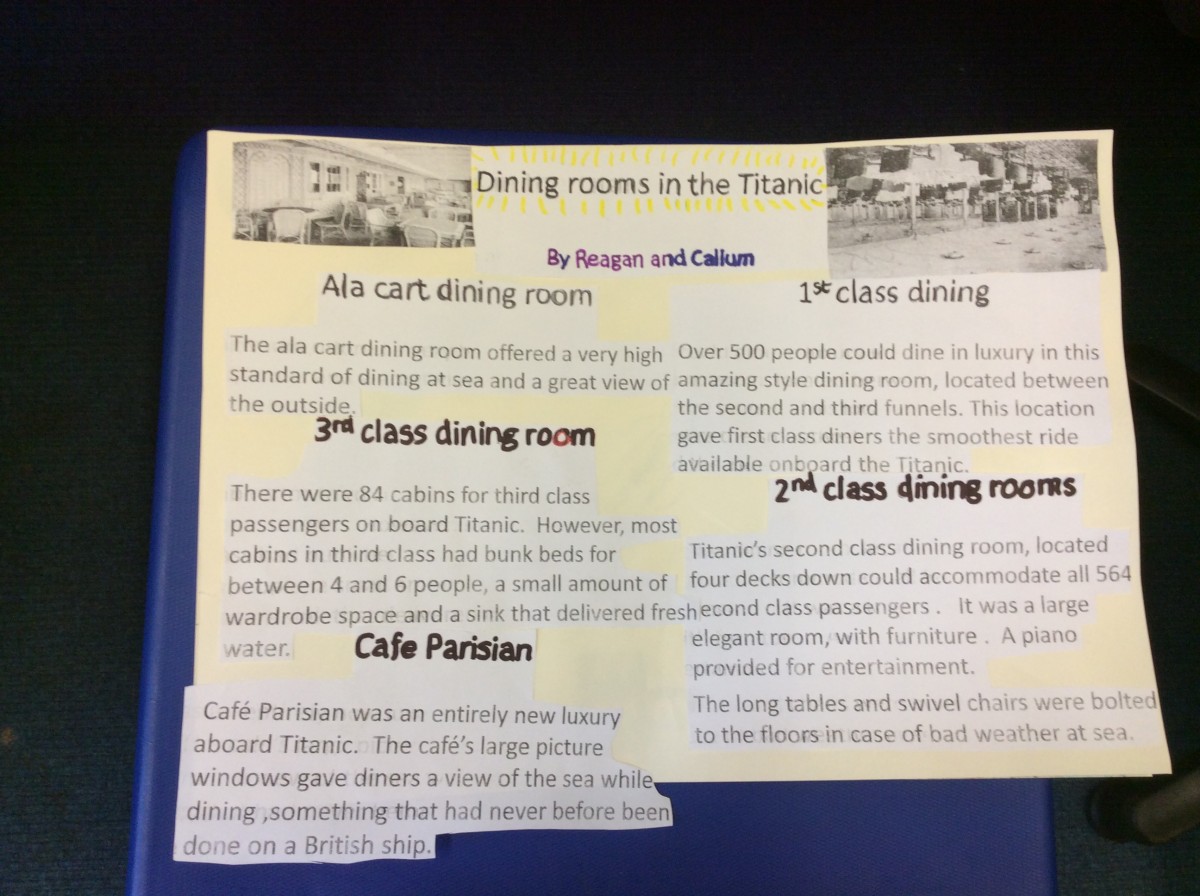 Dining rooms in the Titanic
By Reagan and Callum
Ala cart dining room
The ala cart dining room offered a very high
standard of dining at sea and a great view of
the outside.
3rd class dining room
There were 84 cabins for third class
passengers on board Titanic. However, most
cabins in third class had bunk beds for
between 4 and 6 people, a small amount of
wardrobe space and a sink that delivered fresh
water.
Cafe Parisian
Café Parisian was an entirely new luxury
aboard Titanic. The café's large picture
windows gave diners a view of the sea while
dining ,something that had never before been
done on a British ship.
1st class dining
Over 500 people could dine in luxury in this
amazing style dining room, located between
the second and third funnels. This location
gave first class diners the smoothest ride
available onboard the Titanic.
2nd class dining rooms
Titanic's second class dining room, located
four decks down could accommodate all 564
econd class passengers . It was a large
elegant room, with furniture . A piano
provided for entertainment.
The long tables and swivel chairs were bolted
to the floors in case of bad weather at sea.